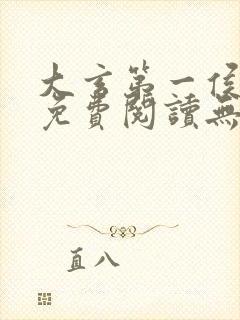 大玄第一侯
免費閱讀無
直八